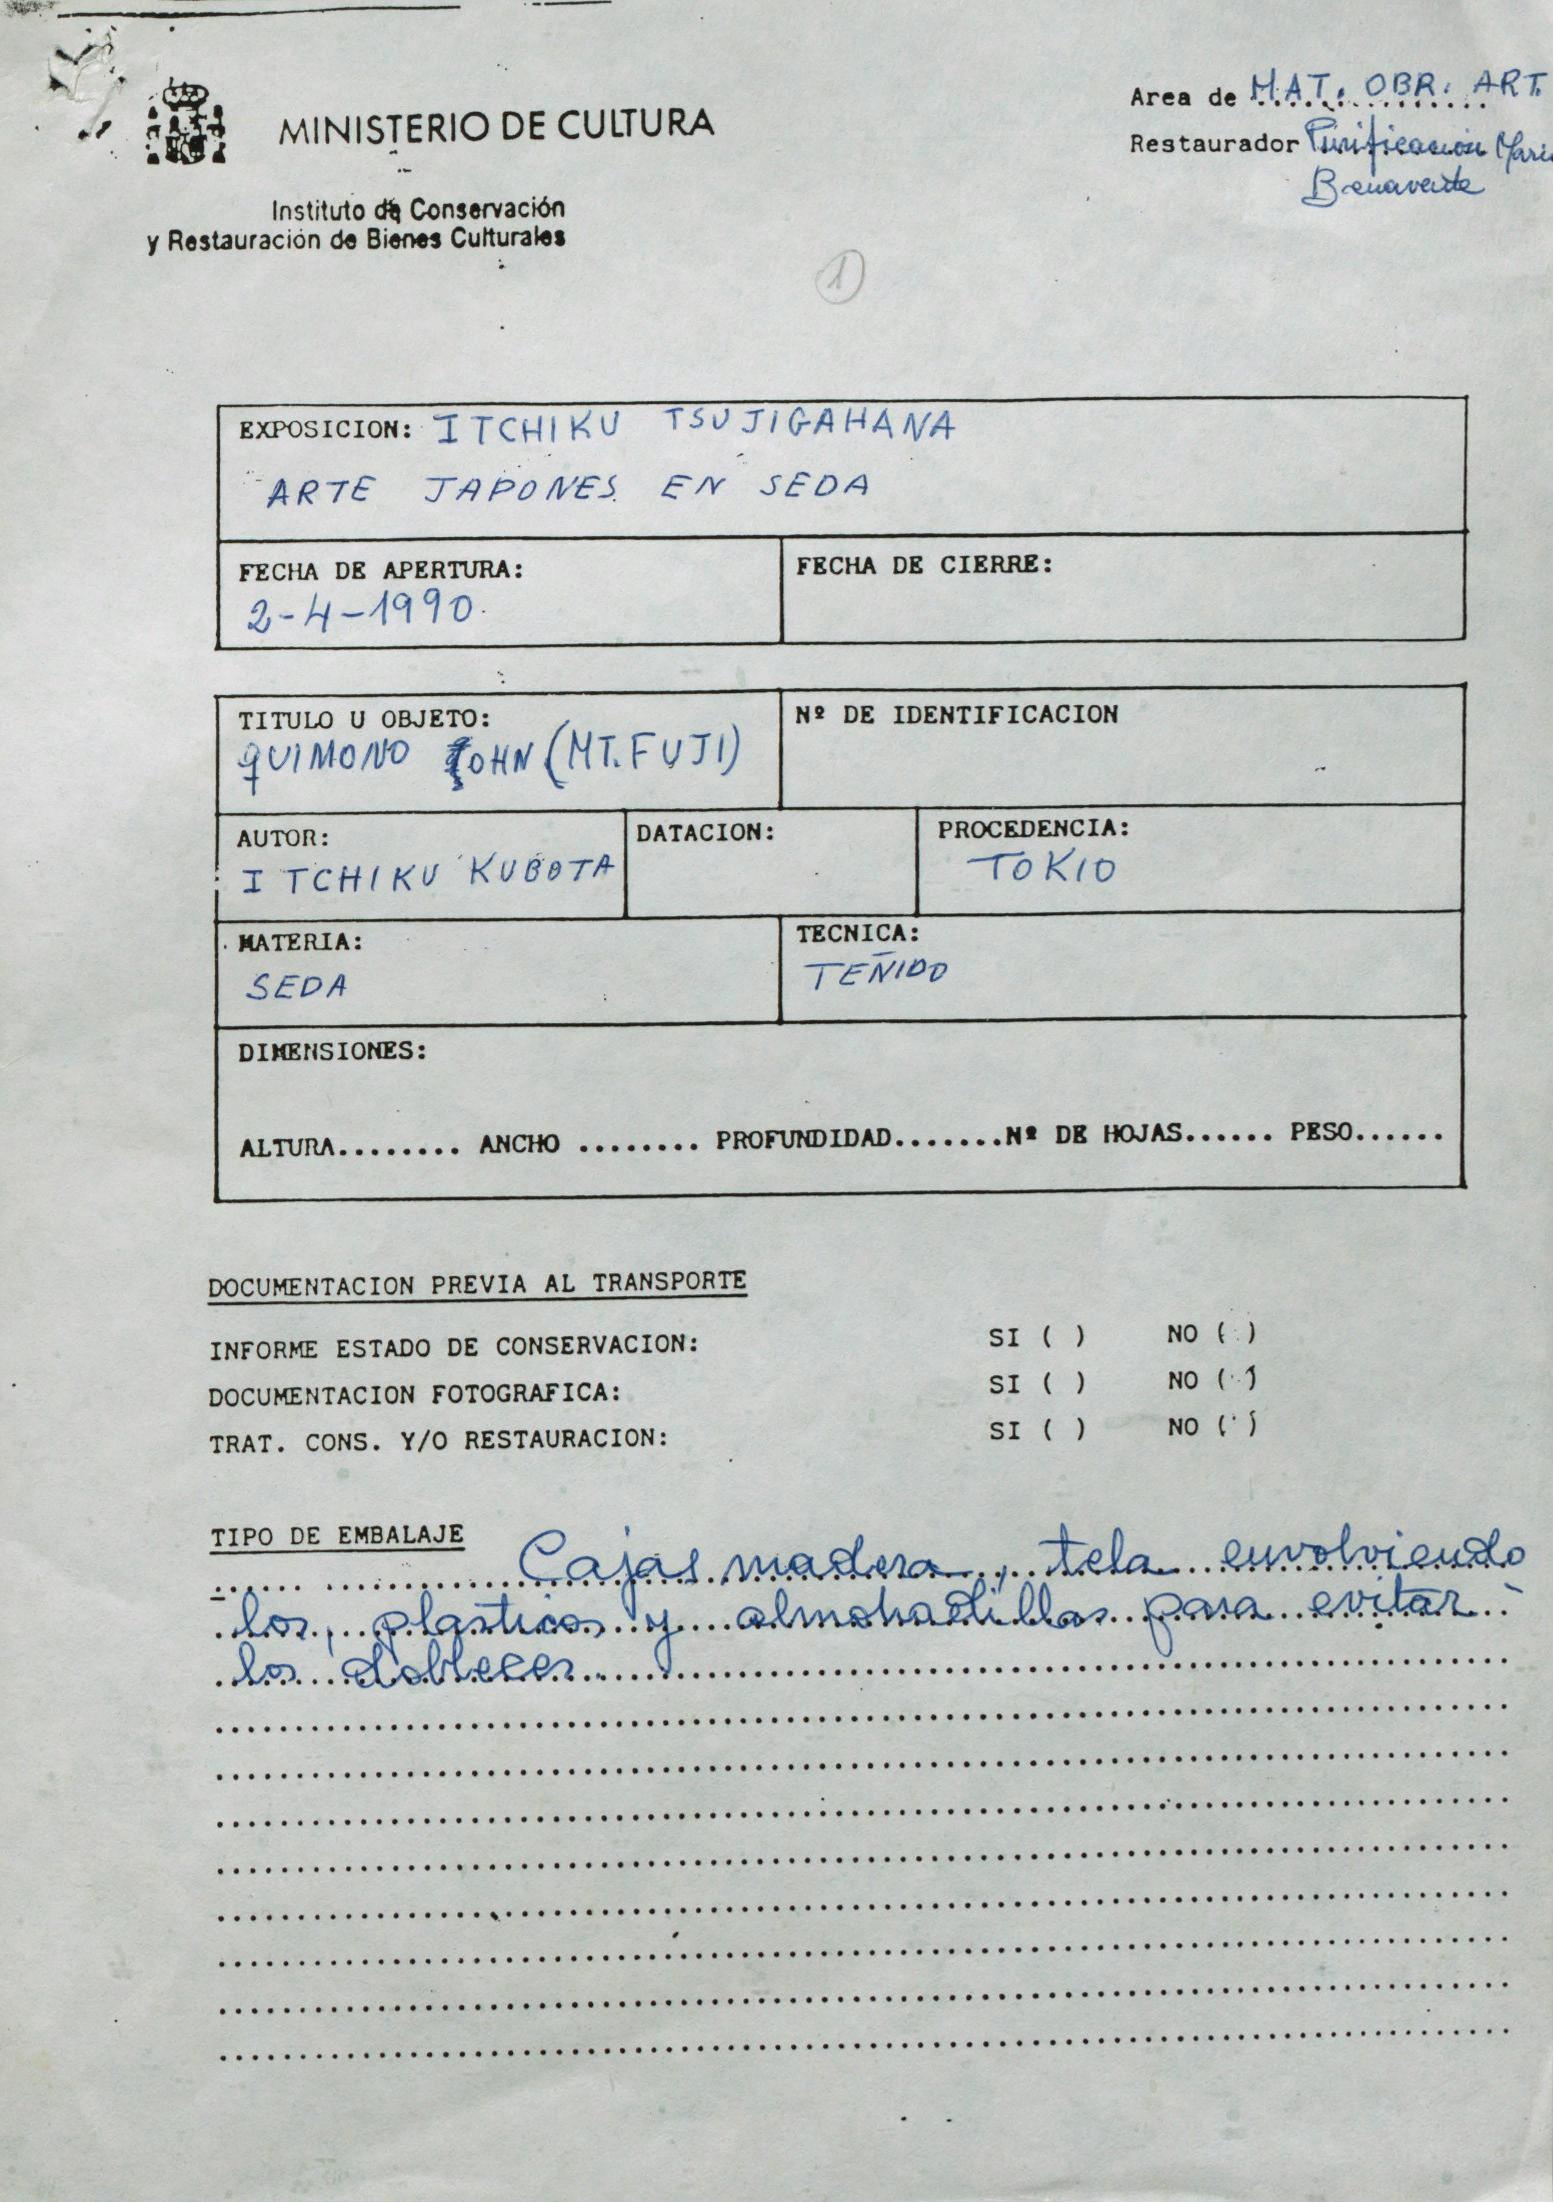 MINISTERIO DE CULTURA
Instituto de Conservación
y Restauración de Bienes Culturales
Area de MAT. OBR. ART.
Restaurador Purificación Marin
Benavente
1
EXPOSICION: ITCHIKU TSUJIGAHANA
ARTE JAPONES EN SEDA
FECHA DE APERTURA: FECHA DE CIERRE:
2-4-1990
TITULO U OBJETO: Nº DE IDENTIFICACION
QUIMONO OHN (MT. FUJI)
AUTOR: DATACION: PROCEDENCIA:
ITCHIKU KUBOTA TOKIO
MATERIA: TECNICA:
SEDA TEÑIDO
DIMENSIONES:
ALTURA........ ANCHO ........ PROFUNDIDAD.......Nº DE HOJAS...... PESO......
DOCUMENTACION PREVIA AL TRANSPORTE
INFORME ESTADO DE CONSERVACION: SI ( ) NO ( )
DOCUMENTACION FOTOGRAFICA: SI ( ) NO ( )
TRAT. CONS. Y/O RESTAURACION: SI ( ) NO ( )
TIPO DE EMBALAJE
Cajas madera, tela envolviendo
los, plasticos y almohadillas para evitar
los dobleces